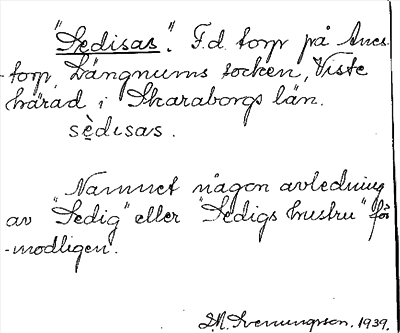 "Sedisas". F.d. torp på Anes-
torp, Längnums socken, Viste
härad i Skaraborgs län.
sèdisas.
Namnet någon avledning
av "Sedig" eller "Sedigs hustru" för
-modligen.
Svenungsson. 1939.